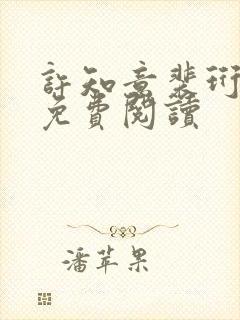 許知意裴珩
免費閱讀
潘苹果